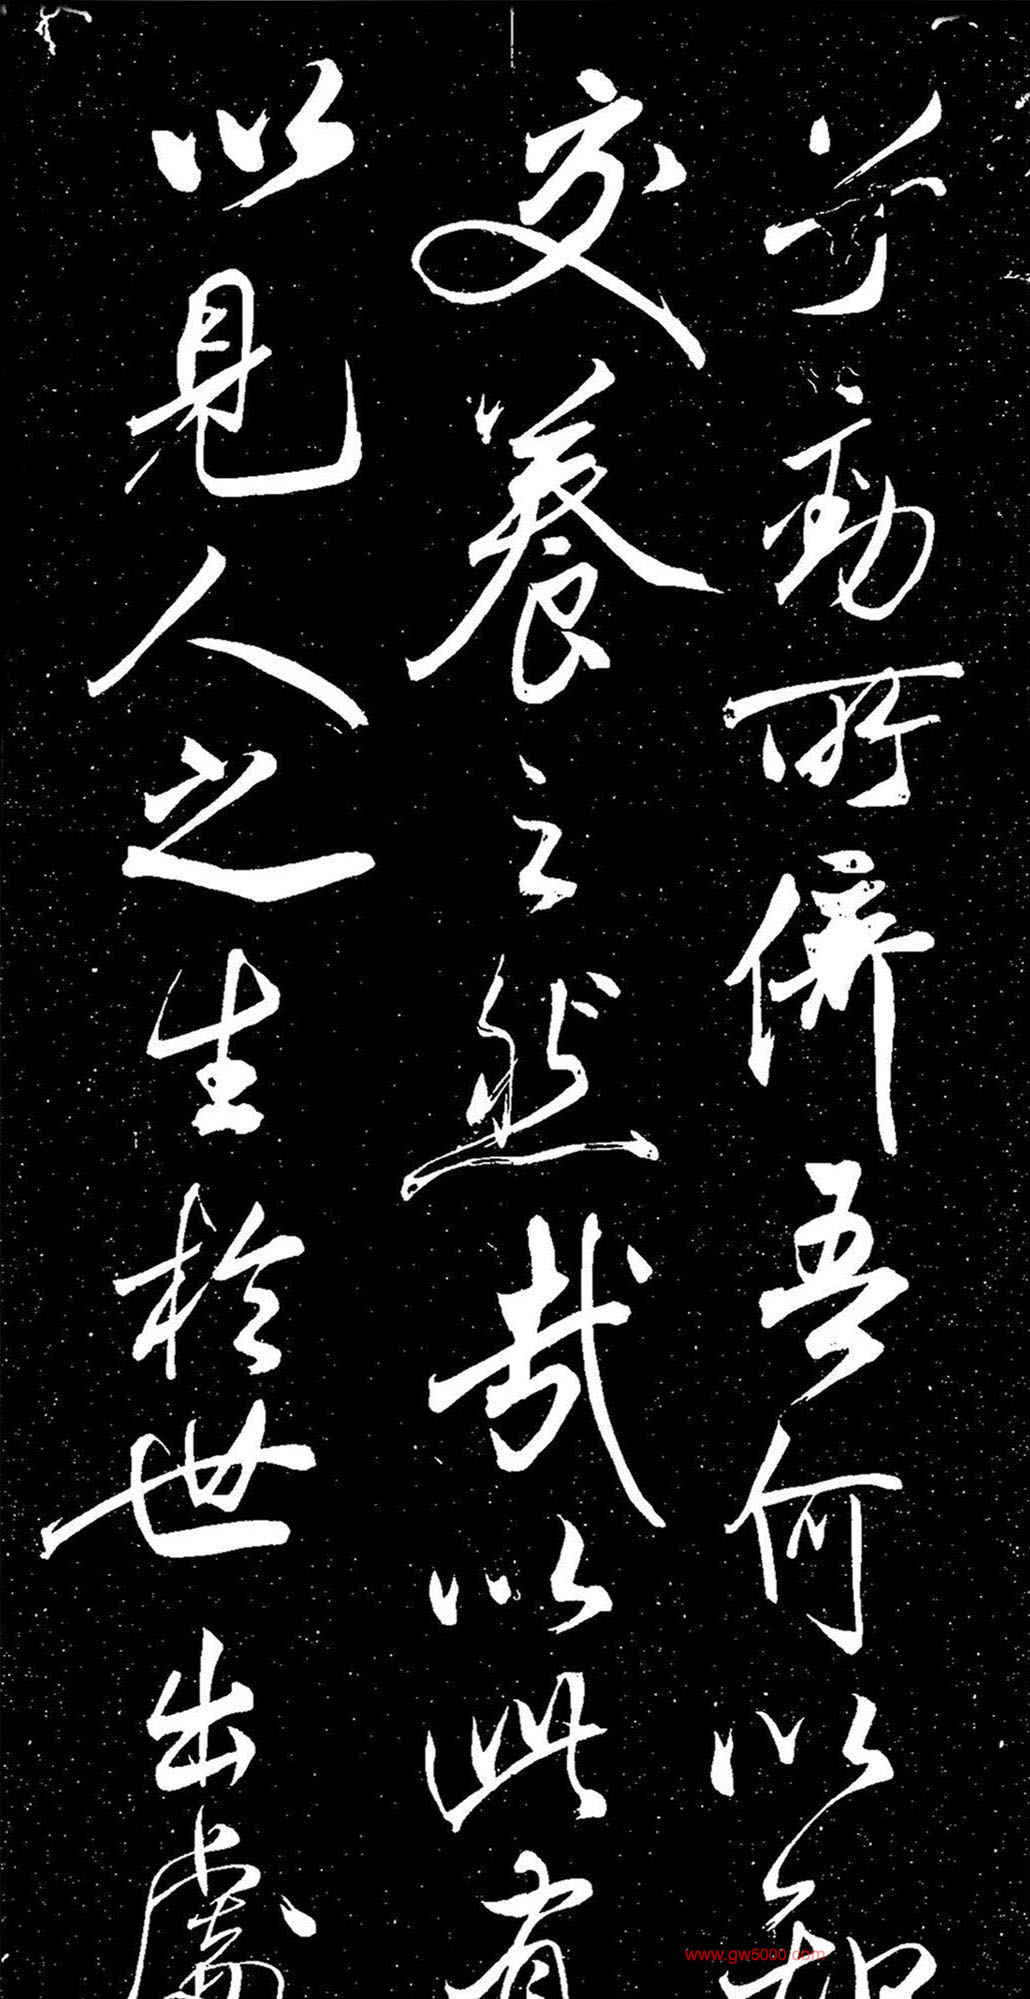 動所儕吾何以知
交養之然哉以此有
以見人之生於世出處
www.gw5000.com